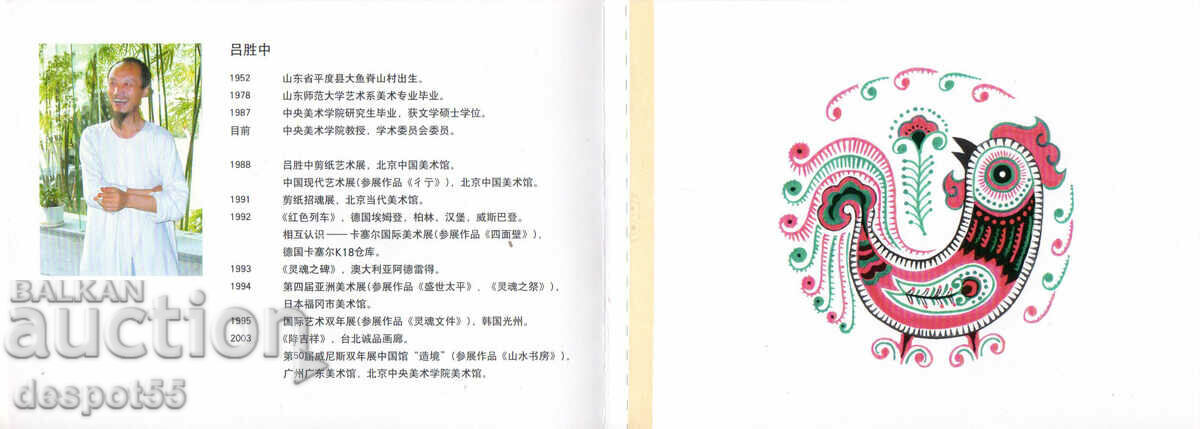 吕胜中
1952 山东省平度县大鱼脊山村出生。
1978 山东师范大学艺术系美术专业毕业。
1987 中央美术学院研究生毕业，获文学硕士学位。
目前 中央美术学院教授，学术委员会委员。
1988 吕胜中剪纸艺术展，北京中国美术馆。
中国现代艺术展(参展作品《彳亍》)，北京中国美术馆。
1991 剪纸招魂展，北京当代美术馆。
1992 《红色列车》，德国埃姆登，柏林，汉堡，威斯巴登。
相互认识——卡塞尔国际美术展(参展作品《四面壁》)，
德国卡塞尔K18仓库。
1993 《灵魂之碑》，澳大利亚阿德雷得。
1994 第四届亚洲美术展(参展作品《盛世太平》，《灵魂之祭》)，
日本福冈市美术馆。
1995 国际艺术双年展(参展作品《灵魂文件》)，韩国光州。
2003 《降吉祥》，台北诚品画廊。
第50届威尼斯双年展中国馆“造境”(参展作品《山水书房》)，
广州广东美术馆，北京中央美术学院美术馆。
BALKAN
auction
despot55